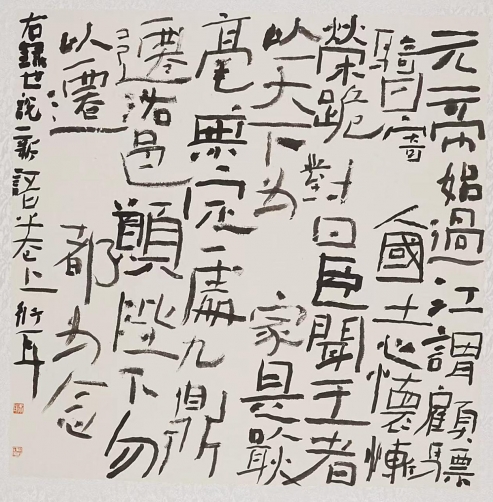 元帝始過江謂顧驃
騎曰寄人國土心懷慚
榮跪對曰臣聞王者
以天下为家是耿
亳無定處九鼎
遷洛邑顧陛下勿
以遷都为念
右録世说新語卷上